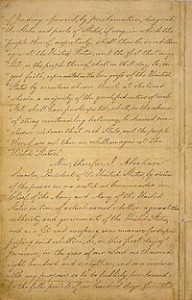 of January aforesaid, by proclamation, designate
the States and parts of States, if any, in which the
people thereof respectively, shall then be in rebellion
against the United States; and the fact that any
State, or the people thereof, shall on that day be, in
good faith, represented in the Congress of the United
States by members chosen thereto, at elections
wherein a majority of the qualified voters of such
State shall have participated, shall, in the absence
of strong countervailing testimony, be deemed con-
clusive evidence that such State, and the people
thereof, are not then in rebellion against the
United States.
Now, therefore I, Abraham
Lincoln, President of the United States, by virtue
of the power in me vested as Commander-in-
Chief, of the Army and Navy of the United
States in time of actual armed rebellion against the
authority and government of the United States,
and as a fit and necessary war measure for sup-
pressing said rebellion, do, on this first day of
January, in the year of our Lord one thousand
eight hundred and sixty three, and in accordance
with my purpose so to do publicly proclaimed
for the full period of one hundred days, from the